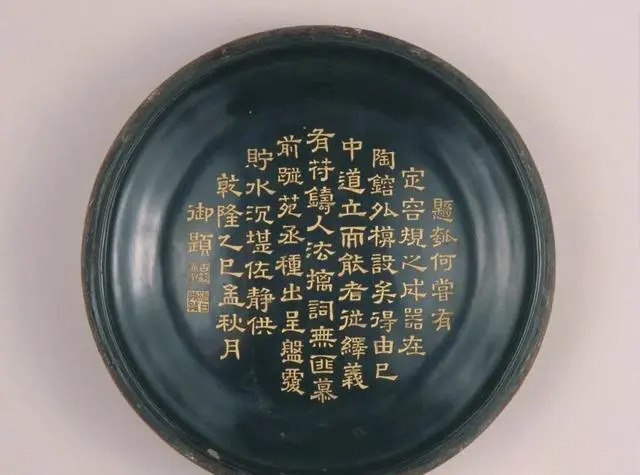 懸瓠何嘗有
定容規之成器在
陶鎔外模設矣得由己
中道立而能者從繹義
有符鑄人法摛詞無匪慕
前蹤苑丞種出呈盤覆
貯水沉堪佐靜供
乾隆乙巳孟秋月
御題